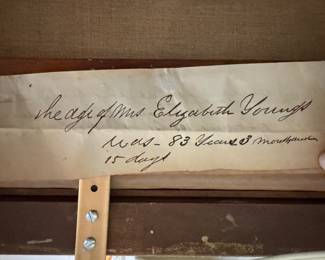 the age of Mrs Elizabeth Youngs
was - 83 Years 3 Months and
15 days